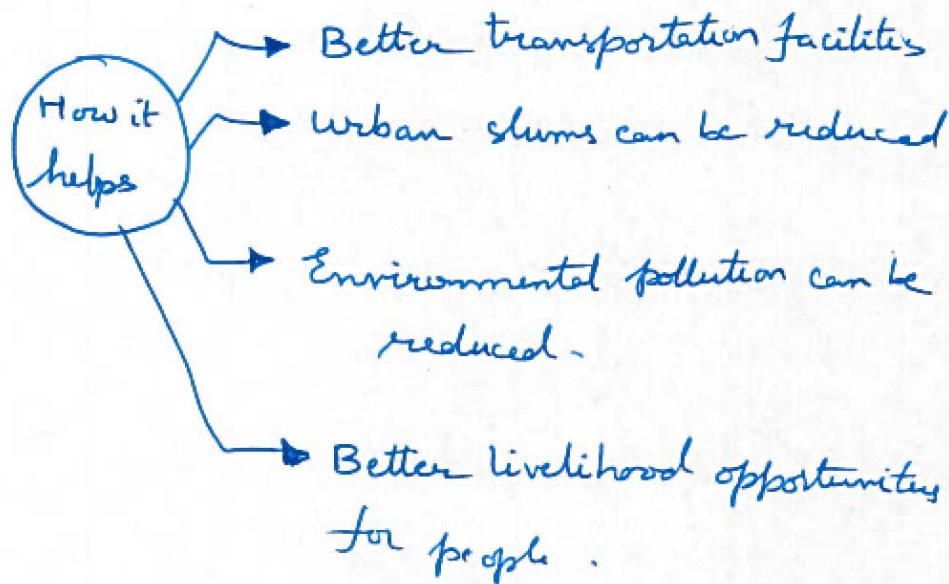 How it
helps
Better transportation facilities
Urban slums can be reduced
Environmental pollution can be
reduced.
Better livelihood opportunities
for people.